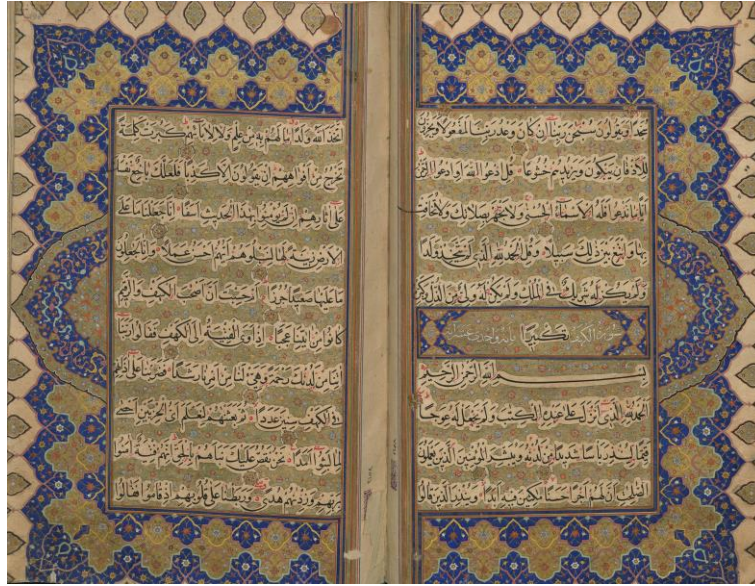 سجدا ويقولون سبحن ربنا ان كان وعد ربنا لمفعولا ويخرون
للاذقان يبكون ويزيدهم خشوعا قل ادعوا الله او ادعوا الرحمن
ايا ما تدعوا فله الاسماء الحسنى ولا تجهر بصلاتك ولا تخافت
بها وابتغ بين ذلك سبيلا وقل الحمد لله الذي لم يتخذ ولدا
ولم يكن له شريك في الملك ولم يكن له ولي من الذل وكبره
سورة الكهف تكبيرا مائة
بسم الله الرحمن الرحيم
الحمد لله الذي انزل على عبده الكتب ولم يجعل له عوجا
قيما لينذر باسا شديدا من لدنه ويبشر المؤمنين الذين يعملون
الصلحت ان لهم اجرا حسنا ماكثين فيه ابدا وينذر الذين قالوا
اتخذ الله ولدا ما لهم به من علم ولا لابائهم كبرت كلمة
تخرج من افواههم ان يقولون الا كذبا فلعلك باخع نفسك
على اثارهم ان لم يؤمنوا بهذا الحديث اسفا انا جعلنا ما على
الارض زينة لها لنبلوهم ايهم احسن عملا وانا لجاعلون
ما عليها صعيدا جرزا ام حسبت ان اصحب الكهف والرقيم
كانوا من اياتنا عجبا اذ اوى الفتية الى الكهف فقالوا ربنا
اتنا من لدنك رحمة وهيئ لنا من امرنا رشدا فضربنا على اذانهم
في الكهف سنين عددا ثم بعثنهم لنعلم اي الحزبين احصى
لما لبثوا امدا نحن نقص عليك نباهم بالحق انهم فتية امنوا
بربهم وزدنهم هدى وربطنا على قلوبهم اذ قاموا فقالوا